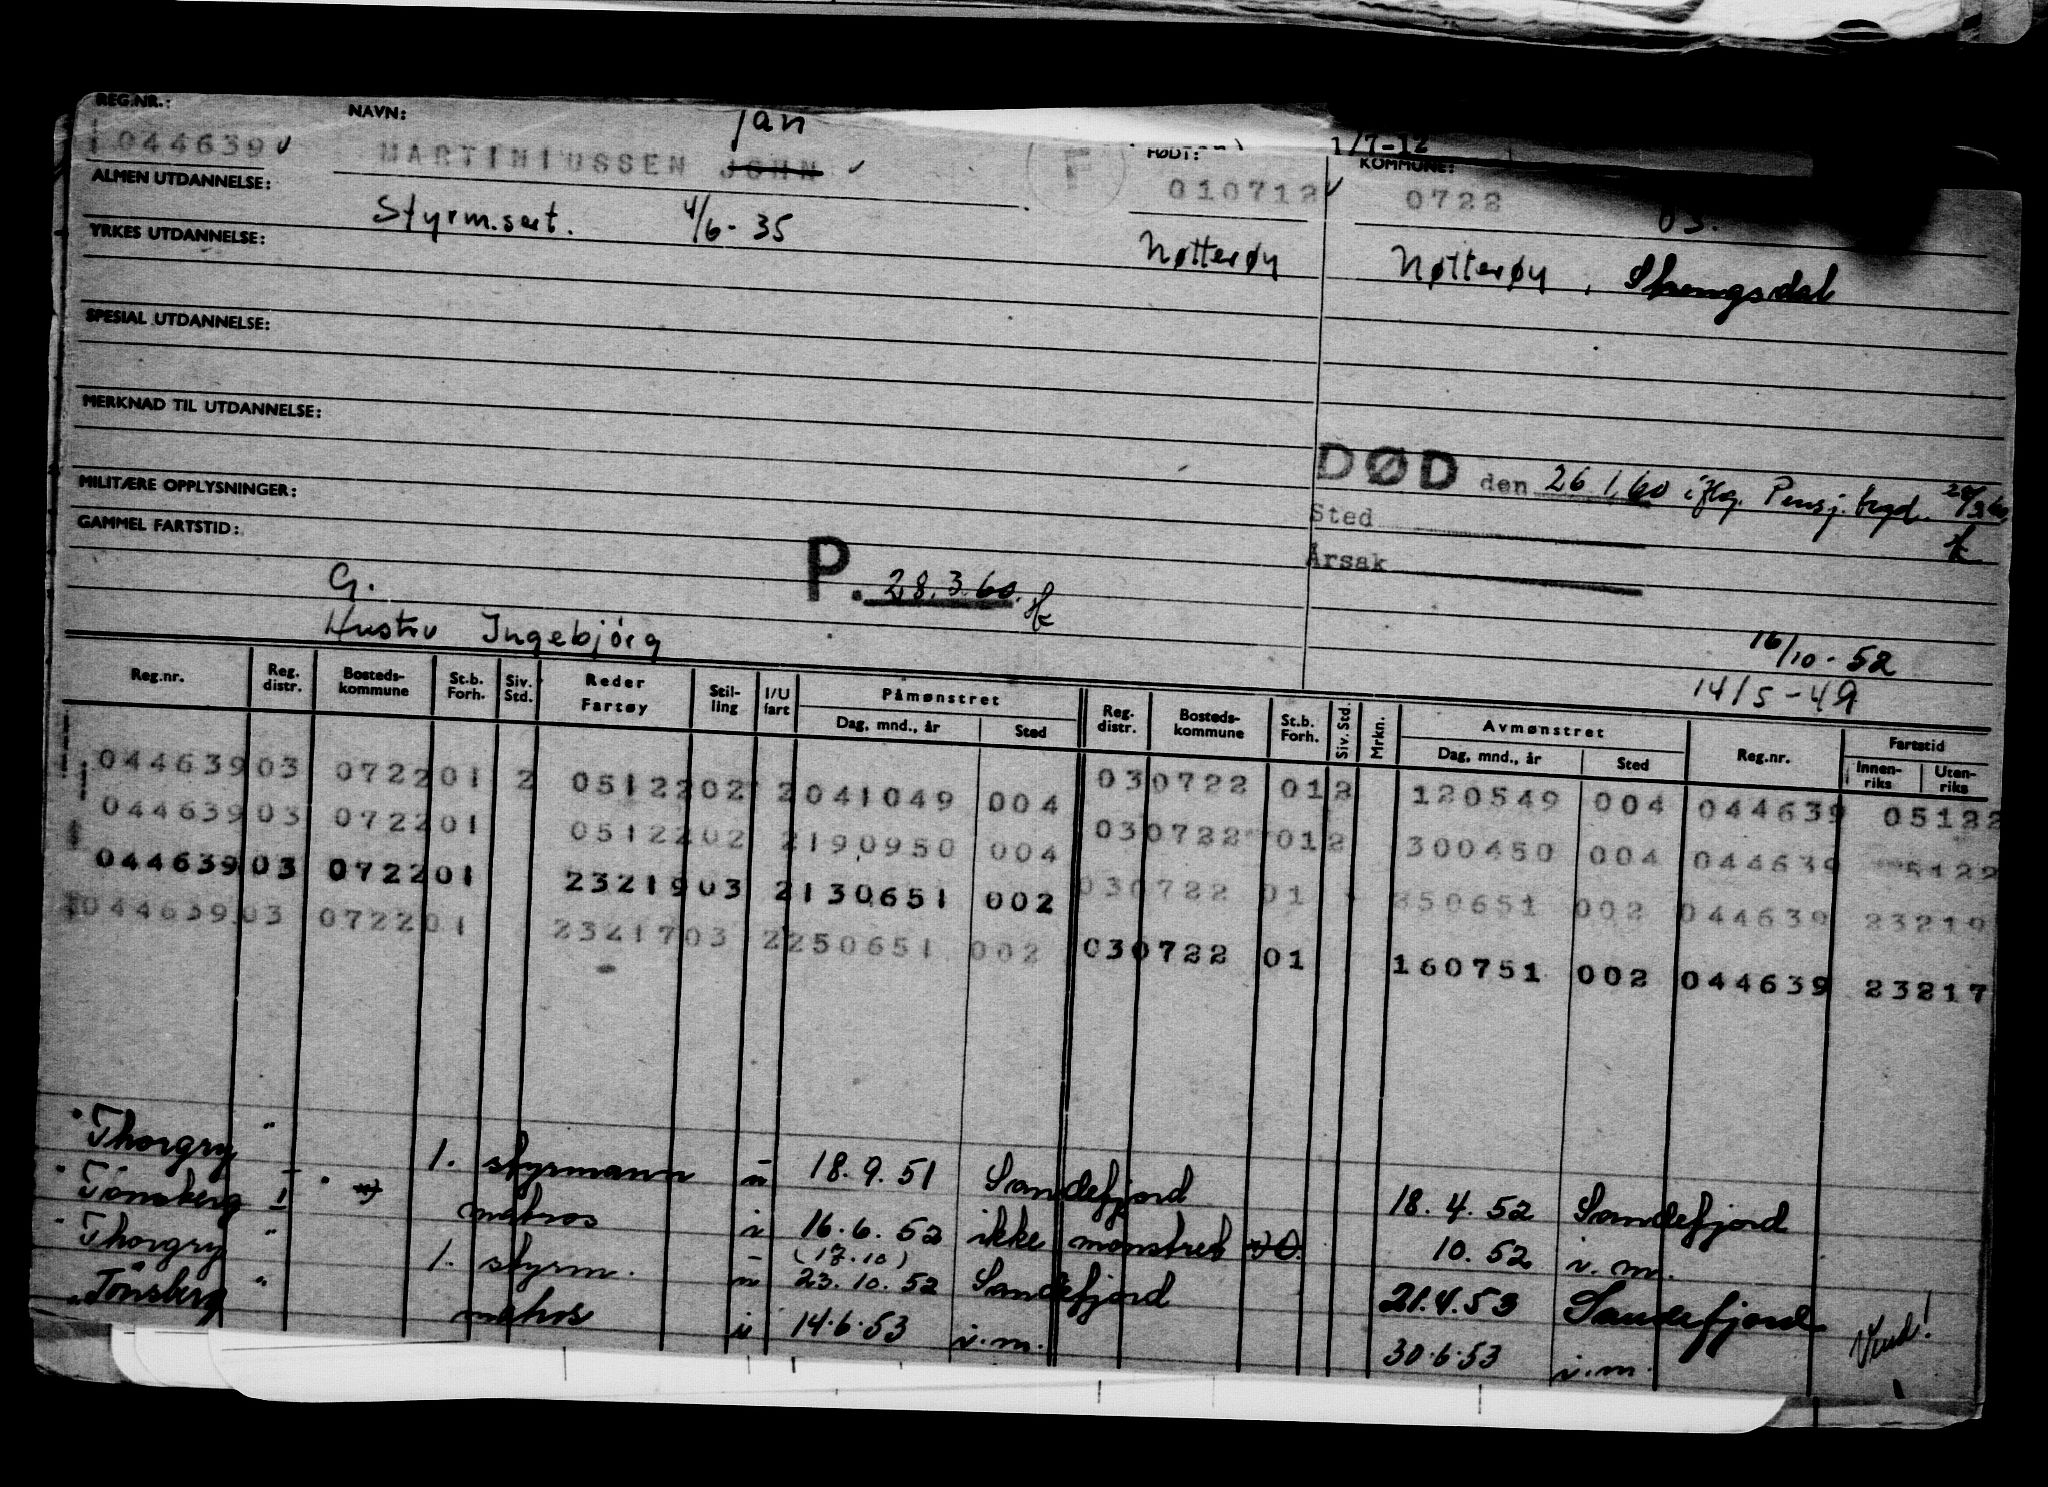 REG.NR.: NAVN: Jan 1/7-12
044639 MARTINIUSSEN JOHN F FØDT: 010712 KOMMUNE: 0722 03.
ALMEN UTDANNELSE:
Styrm.sert. 4/6-35 Nøtterøy Nøtterøy,
YRKES UTDANNELSE:
SPESIAL UTDANNELSE:
MERKNAD TIL UTDANNELSE:
DØD den 26 1.60 iflg. Pensj. trygd.
MILITÆRE OPPLYSNINGER:
Sted
GAMMEL FARTSTID:
Årsak
G. P. 28.3.60.
Hustru Ingebjörg
16/10-52
14/5-49
Reg.nr. Reg. distr. Bosteds-kommune St.b. Forh. Siv. Std. Reder Fartøy Stil-ling I/U fart Påmønstret Dag, mnd., år Sted Reg. distr. Bosteds-kommune St.b. Forh. Siv. Std. Mrkn. Avmønstret Dag, mnd., år Sted Reg.nr. Fartstid Innen-riks Uten-riks
044639 03 0722 01 2 05122 02 2 041049 004 03 0722 01 2 120549 004 044639 05122
044639 03 0722 01 05122 02 2 190950 004 03 0722 01 2 300450 004 044639 5122
044639 03 0722 01 23219 03 2 130651 002 030722 01 250651 002 044639 23219
044639 03 0722 01 23217 03 2 250651 002 030722 01 160751 002 044639 23217
"Thorgry" 1. styrmann u 18.9.51 Sandefjord 18.4.52 Sandefjord
"Tönsberg I" matros i 16.6.52 ikke mönstret 10.52 i.m.
"Thorgry" 1. styrm. u (17.10) 23.10.52 Sandefjord 21.4.53 Sandefjord
"Tönsberg" matros i 14.6.53 i.m. 30.6.53 i.m. Vend!